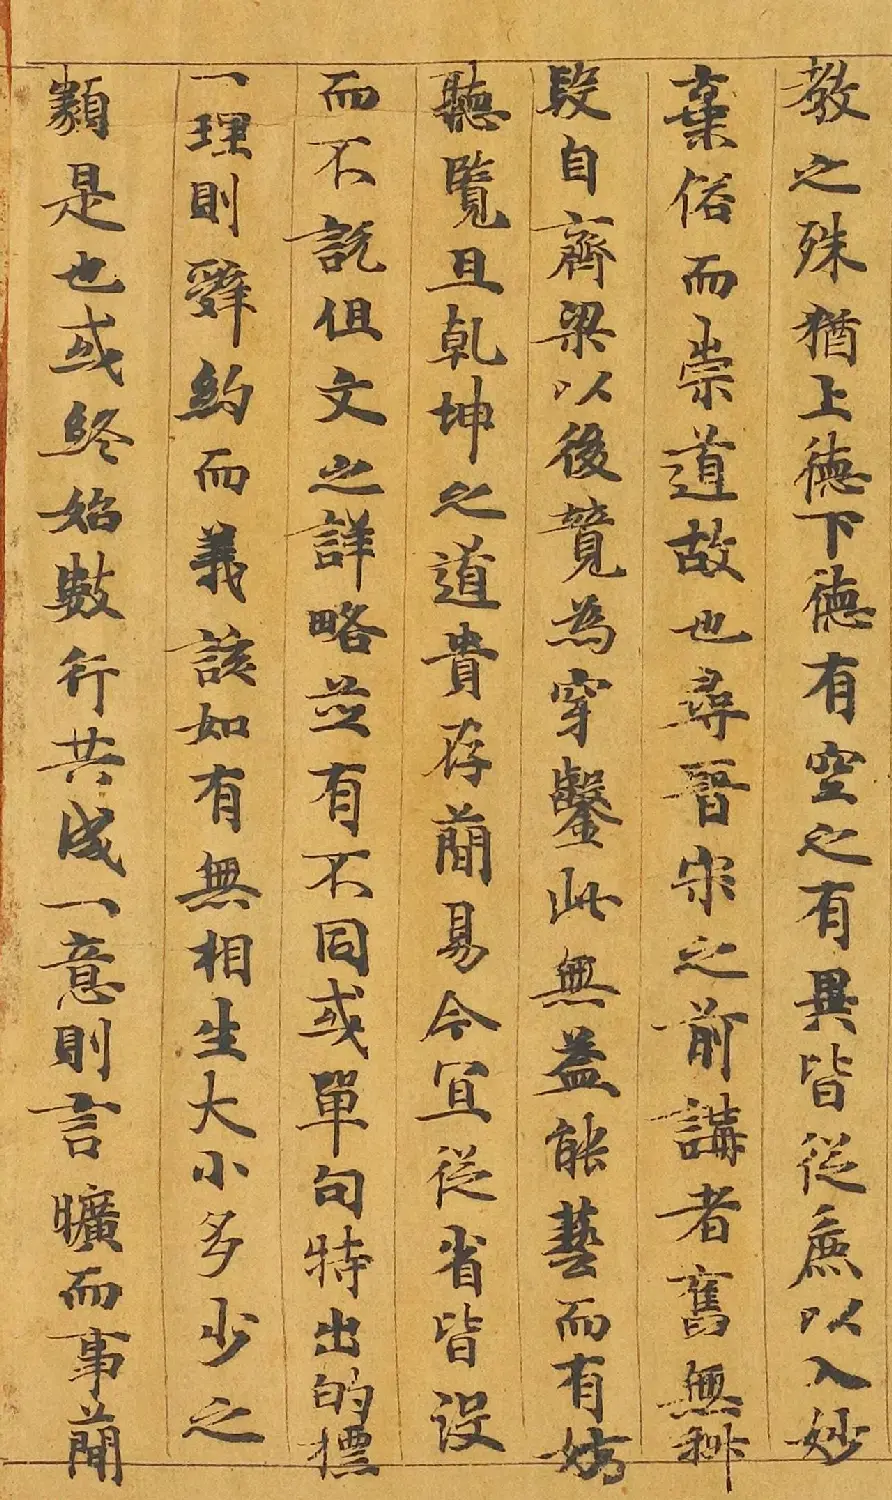 教之殊猶上德下德有空之有異皆從麁以入妙
棄俗而崇道故也尋晉宋之前講者舊無科
段自齊梁以後競為穿鑿此無益能藝而有妨
聽覽且乾坤之道貴存蕳易今宜從省皆没
而不說但文之詳略並有不同或單句特出的標
一理則辤約而義該如有無相生大小多少之
類是也或終始數行共成一意則言曠而事蕳